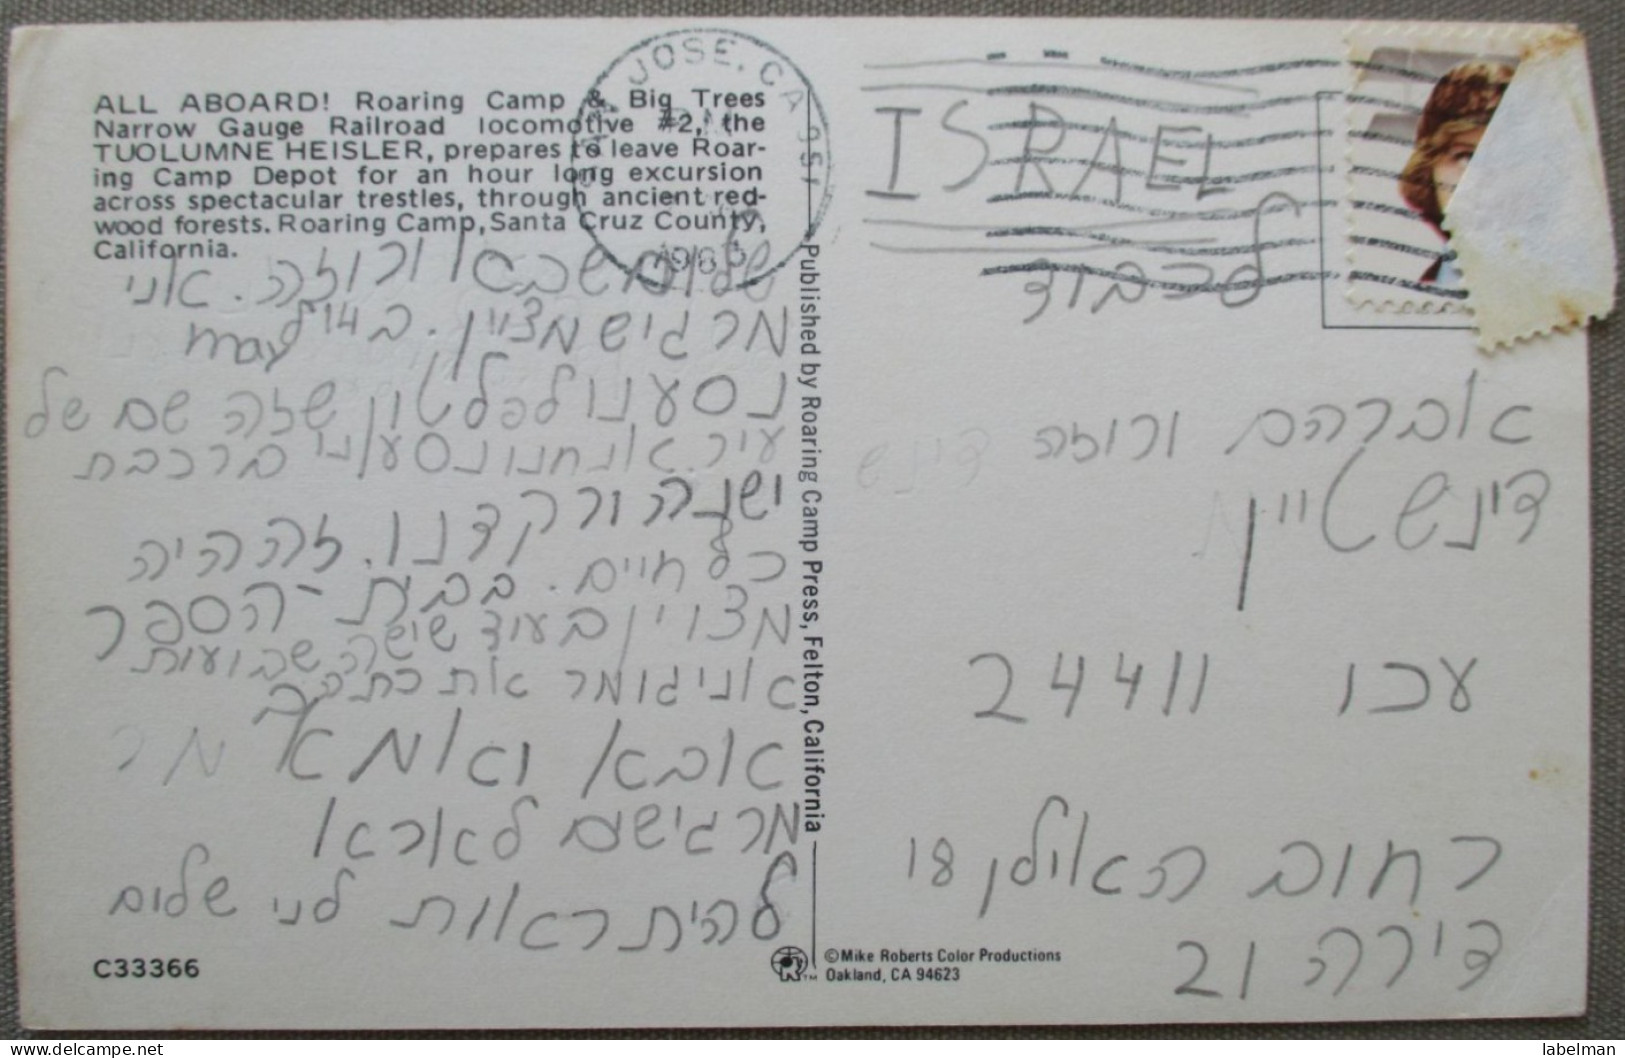 ALL ABOARD! Roaring Camp & Big Trees
Narrow Gauge Railroad locomotive #2, the
TUOLUMNE HEISLER, prepares to leave Roar-
ing Camp Depot for an hour long excursion
across spectacular trestles, through ancient red-
wood forests. Roaring Camp, Santa Cruz County,
California.
JOSE, CA 951
שלום סבא ורוזה. אני
מרגיש מצויין. ב 14 ל
may
נסענו לפלטון שזה שם של
עיר. אנחנו נסענו ברכבת
ישנה ורקדנו. זה היה
כל חיים. בבית-הספר
מצוין בעוד שישה שבועות
אני גומר את כתה ב
אבא ואמא מר
מרגישים
להתראות לני שלום
C33366
Published by Roaring Camp Press, Felton, California
©Mike Roberts Color Productions
Oakland, CA 94623
ISRAEL
לכבוד
אברהם ורוזה דינש
דינשטיין
עכו 24411
רחוב האילן 18
דירה 21
delcampe.net
labelman